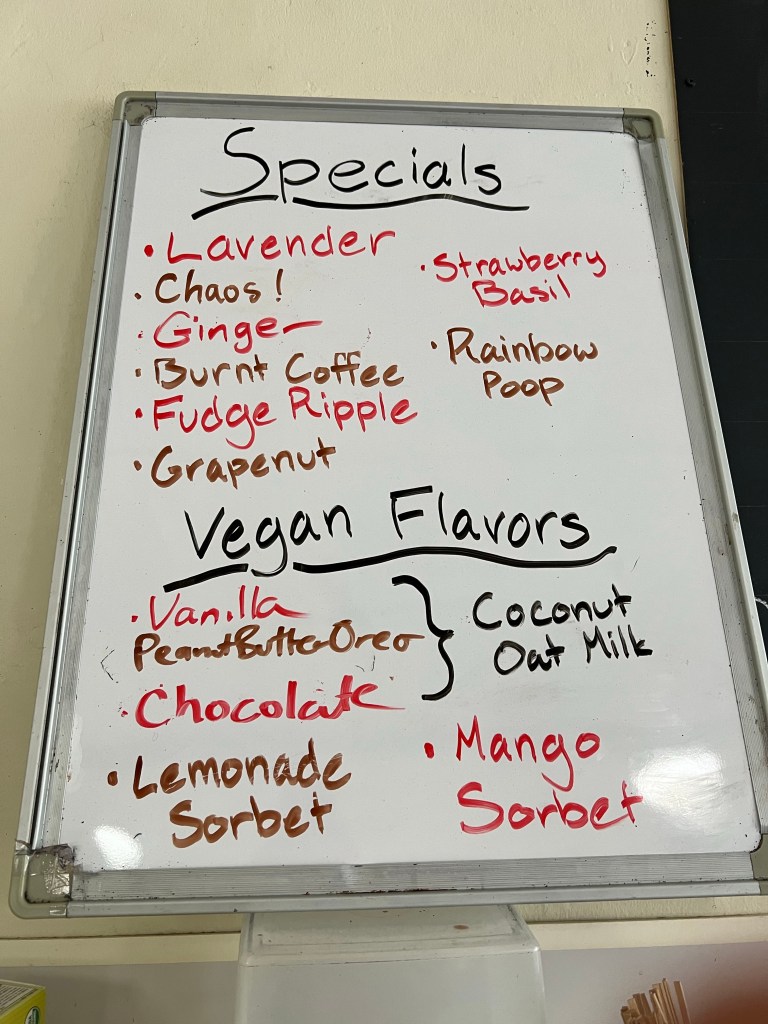 Specials
• Lavender
• Chaos!
• Ginger
• Burnt Coffee
• Fudge Ripple
• Grapenut
• Strawberry
Basil
• Rainbow
Poop
Vegan Flavors
• Vanilla
Peanut Butter Oreo
• Chocolate
Coconut
Oat Milk
• Lemonade
Sorbet
• Mango
Sorbet